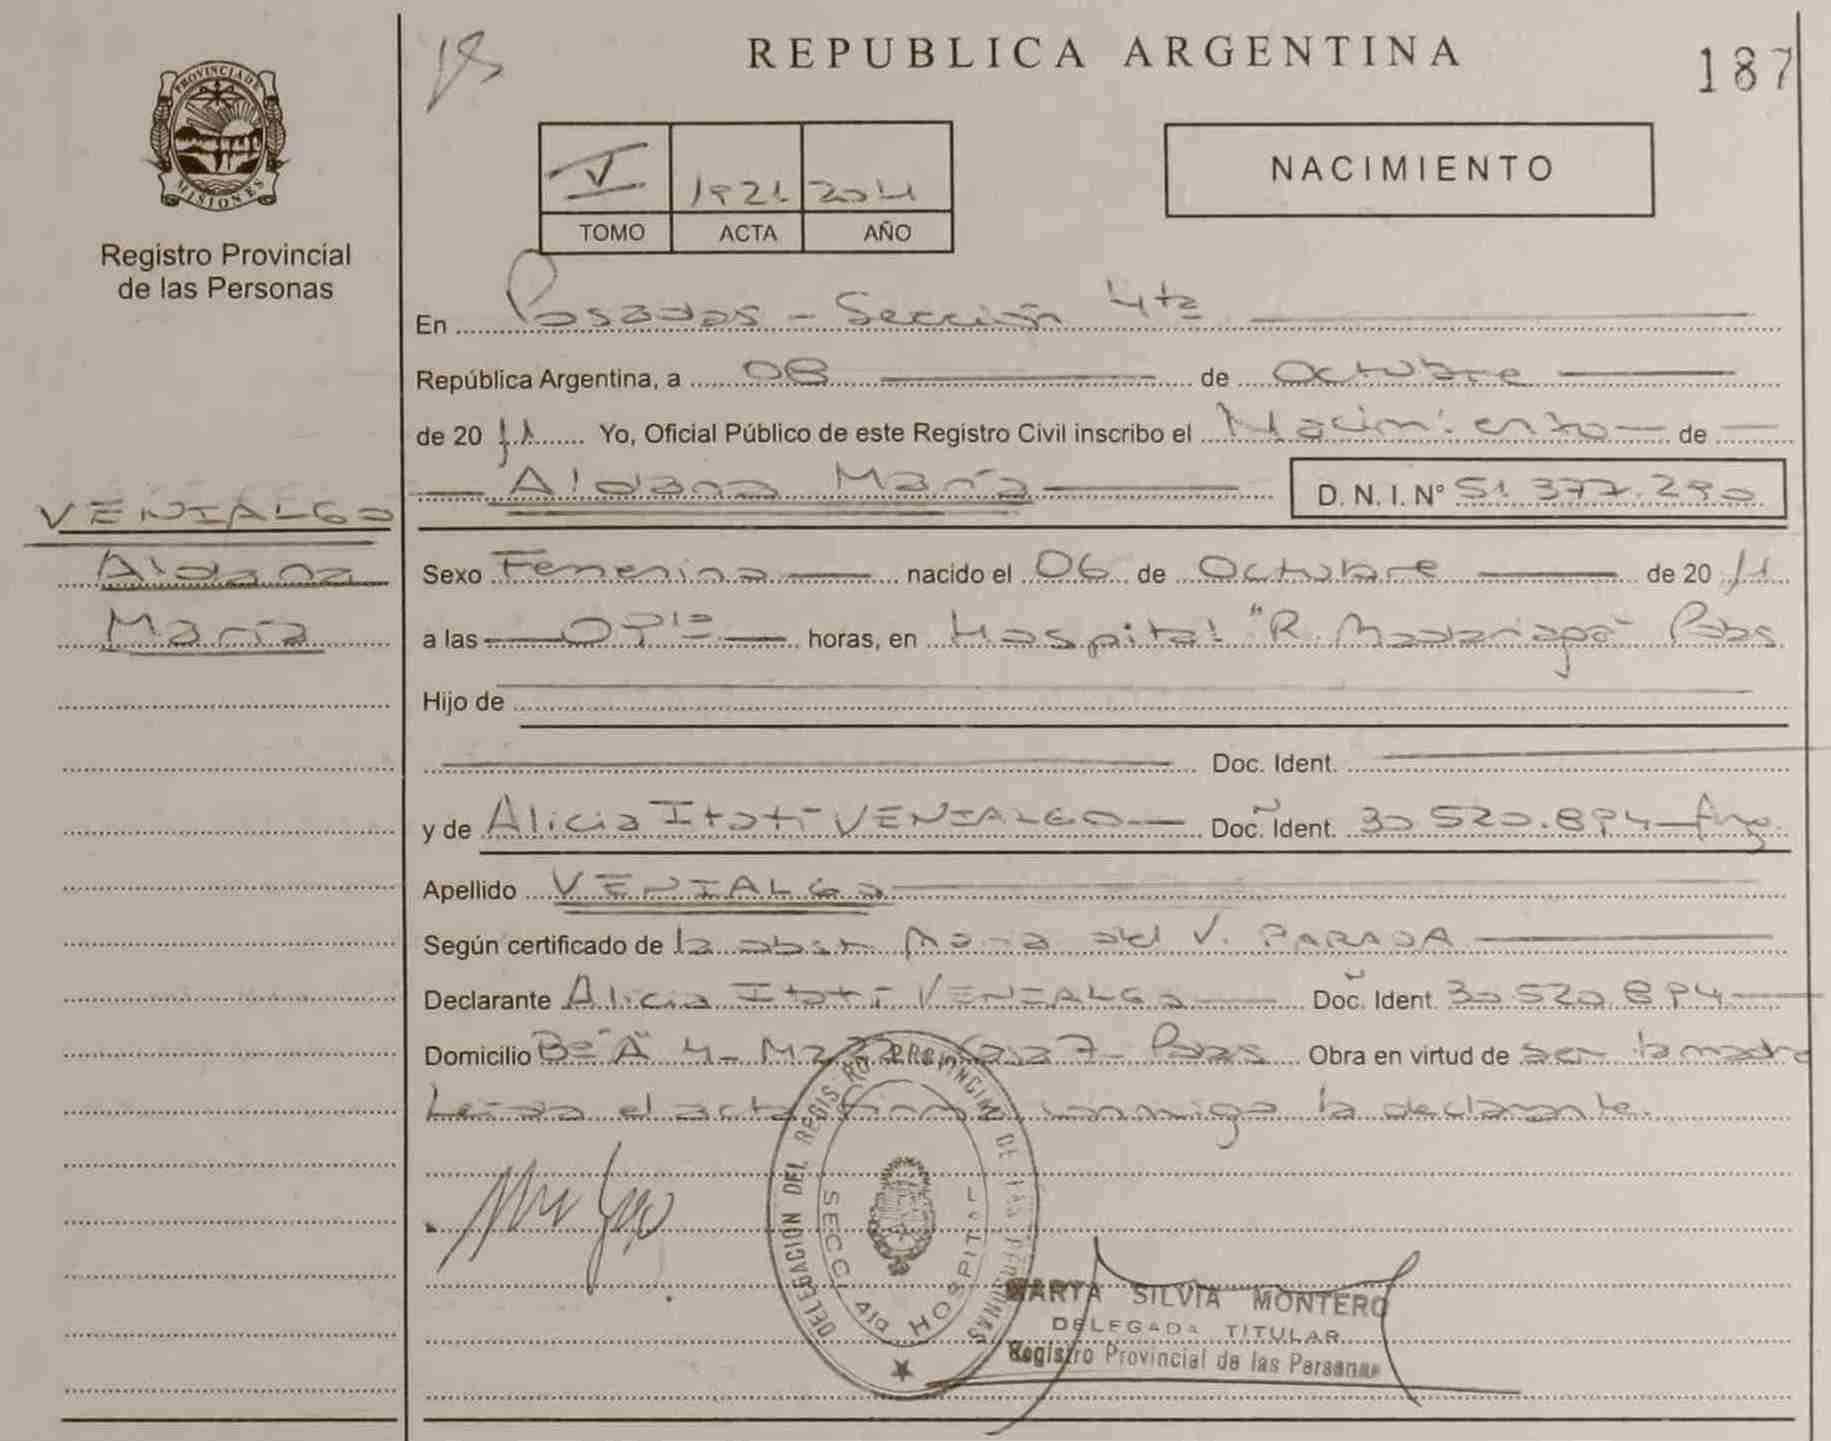 REPUBLICA ARGENTINA
187
PROVINCIA DE
MISIONES
Registro Provincial
de las Personas
V 1921 2011
TOMO ACTA AÑO
NACIMIENTO
En Posadas - Sección 4ta
República Argentina, a 08 de Octubre
de 2011 Yo, Oficial Público de este Registro Civil inscribo el Nacimiento de
Aldana María D. N. I. Nº 51.377.290
VENIALGO
Aldana
María
Sexo Femenino nacido el 06 de Octubre de 2011
a las 09 10 horas, en Hospital "R. Madariaga" Pdas
Hijo de
Doc. Ident.
y de Alicia Itatí VENIALGO Doc. Ident. 30.520.894 Arg.
Apellido VENIALGO
Según certificado de la obst. María del V. PARADA
Declarante Alicia Itatí VENIALGO Doc. Ident. 30.520.894
Domicilio Bº "A" 4 - Mz Pdas Obra en virtud de ser la madre
Leída el acta firma conmigo la declarante.
DELEGACION DEL REGISTRO PROVINCIAL DE LAS PERSONAS
SECC 4ta HOSPITAL
MARTA SILVIA MONTERO
DELEGADA TITULAR
Registro Provincial de las Personas